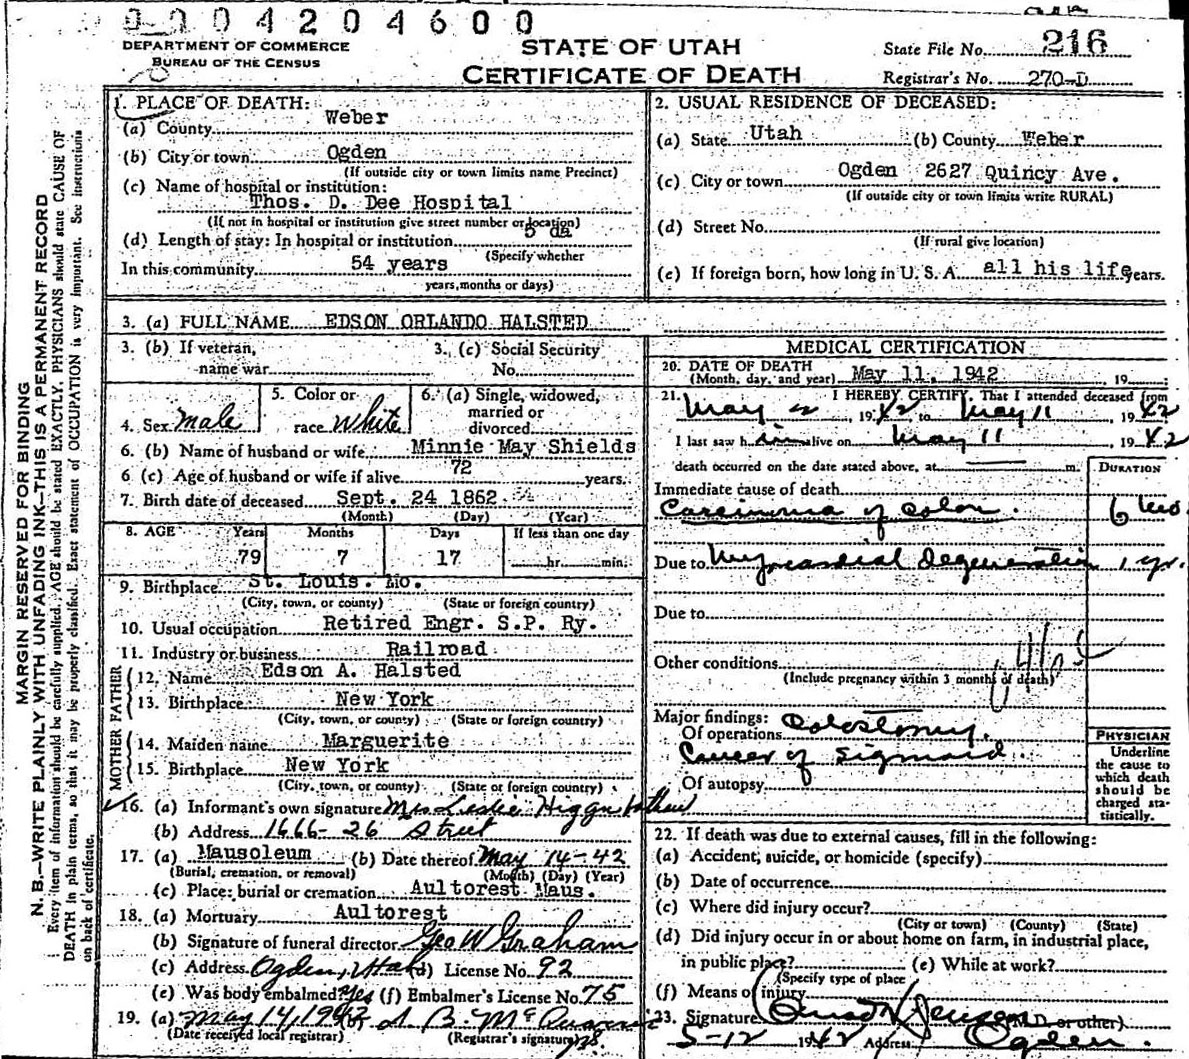 0004204600
DEPARTMENT OF COMMERCE
BUREAU OF THE CENSUS
STATE OF UTAH
CERTIFICATE OF DEATH
State File No. 216
Registrar's No. 270-D
MARGIN RESERVED FOR BINDING
N. B.—WRITE PLAINLY WITH UNFADING INK—THIS IS A PERMANENT RECORD
Every item of information should be carefully supplied. AGE should be stated EXACTLY. PHYSICIANS should state CAUSE OF
DEATH in plain terms, so that it may be properly classified. Exact statement of OCCUPATION is very important. See instructions
on back of certificate.
1. PLACE OF DEATH:
(a) County Weber
(b) City or town Ogden
(If outside city or town limits name Precinct)
(c) Name of hospital or institution:
Thos. D. Dee Hospital
(If not in hospital or institution give street number or location)
(d) Length of stay: In hospital or institution 5 da
(Specify whether
In this community 54 years
years, months or days)
2. USUAL RESIDENCE OF DECEASED:
(a) State Utah (b) County Weber
(c) City or town Ogden 2627 Quincy Ave.
(If outside city or town limits write RURAL)
(d) Street No.
(If rural give location)
(e) If foreign born, how long in U. S. A. all his life years.
3. (a) FULL NAME EDSON ORLANDO HALSTED
3. (b) If veteran, name war
3. (c) Social Security No.
4. Sex male
5. Color or race White
6. (a) Single, widowed, married or divorced
6. (b) Name of husband or wife Minnie May Shields
6 (c) Age of husband or wife if alive 72 years.
7. Birth date of deceased Sept. 24 1862
(Month) (Day) (Year)
8. AGE Years Months Days If less than one day
79 7 17 hr. min.
9. Birthplace St. Louis. Mo.
(City, town, or county) (State or foreign country)
10. Usual occupation Retired Engr. S.P. Ry.
11. Industry or business Railroad
FATHER
12. Name Edson A. Halsted
13. Birthplace New York
(City, town, or county) (State or foreign country)
MOTHER
14. Maiden name Marguerite
15. Birthplace New York
(City, town, or county) (State or foreign country)
16. (a) Informant's own signature Mrs Leslie
(b) Address 1666-26 Street
17. (a) Mausoleum (b) Date thereof May 14-42
(Burial, cremation, or removal) (Month) (Day) (Year)
(c) Place: burial or cremation Aultorest Maus.
18. (a) Mortuary Aultorest
(b) Signature of funeral director Geo W Graham
(c) Address Ogden, Utah (d) License No. 92
(e) Was body embalmed? Yes (f) Embalmer's License No. 75
19. (a) May 14, 1942 (b)
(Date received local registrar) (Registrar's signature)
MEDICAL CERTIFICATION
20. DATE OF DEATH
(Month, day, and year) May 11, 1942, 19
21. I HEREBY CERTIFY, That I attended deceased from
May 1942 to May 11, 1942
I last saw him alive on May 11, 1942
death occurred on the date stated above, at m.
DURATION
Immediate cause of death
Carcinoma of Colon. 6 mo.
Due to Myocardial degeneration 1 yr.
Due to
Other conditions
(Include pregnancy within 3 months of death)
Major findings:
Of operations Colostomy.
Cancer of Sigmoid
Of autopsy
PHYSICIAN
Underline the cause to which death should be charged statistically.
22. If death was due to external causes, fill in the following:
(a) Accident, suicide, or homicide (specify)
(b) Date of occurrence
(c) Where did injury occur?
(City or town) (County) (State)
(d) Did injury occur in or about home on farm, in industrial place,
in public place? (e) While at work?
(Specify type of place
(f) Means of injury
23. Signature Jensen (M.D. or other)
5-12 1942 Address Ogden.